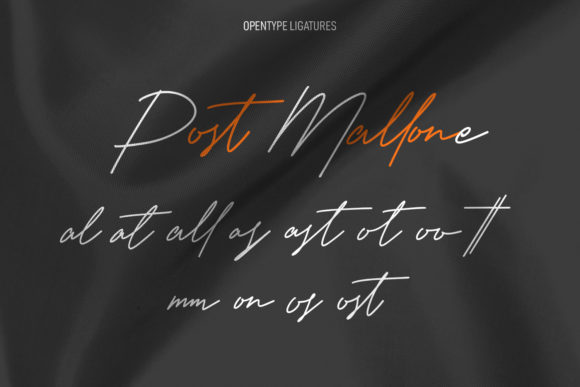 OPENTYPE LIGATURES
Post Mallone
al at all as ast ot oo tt
mm on os ost